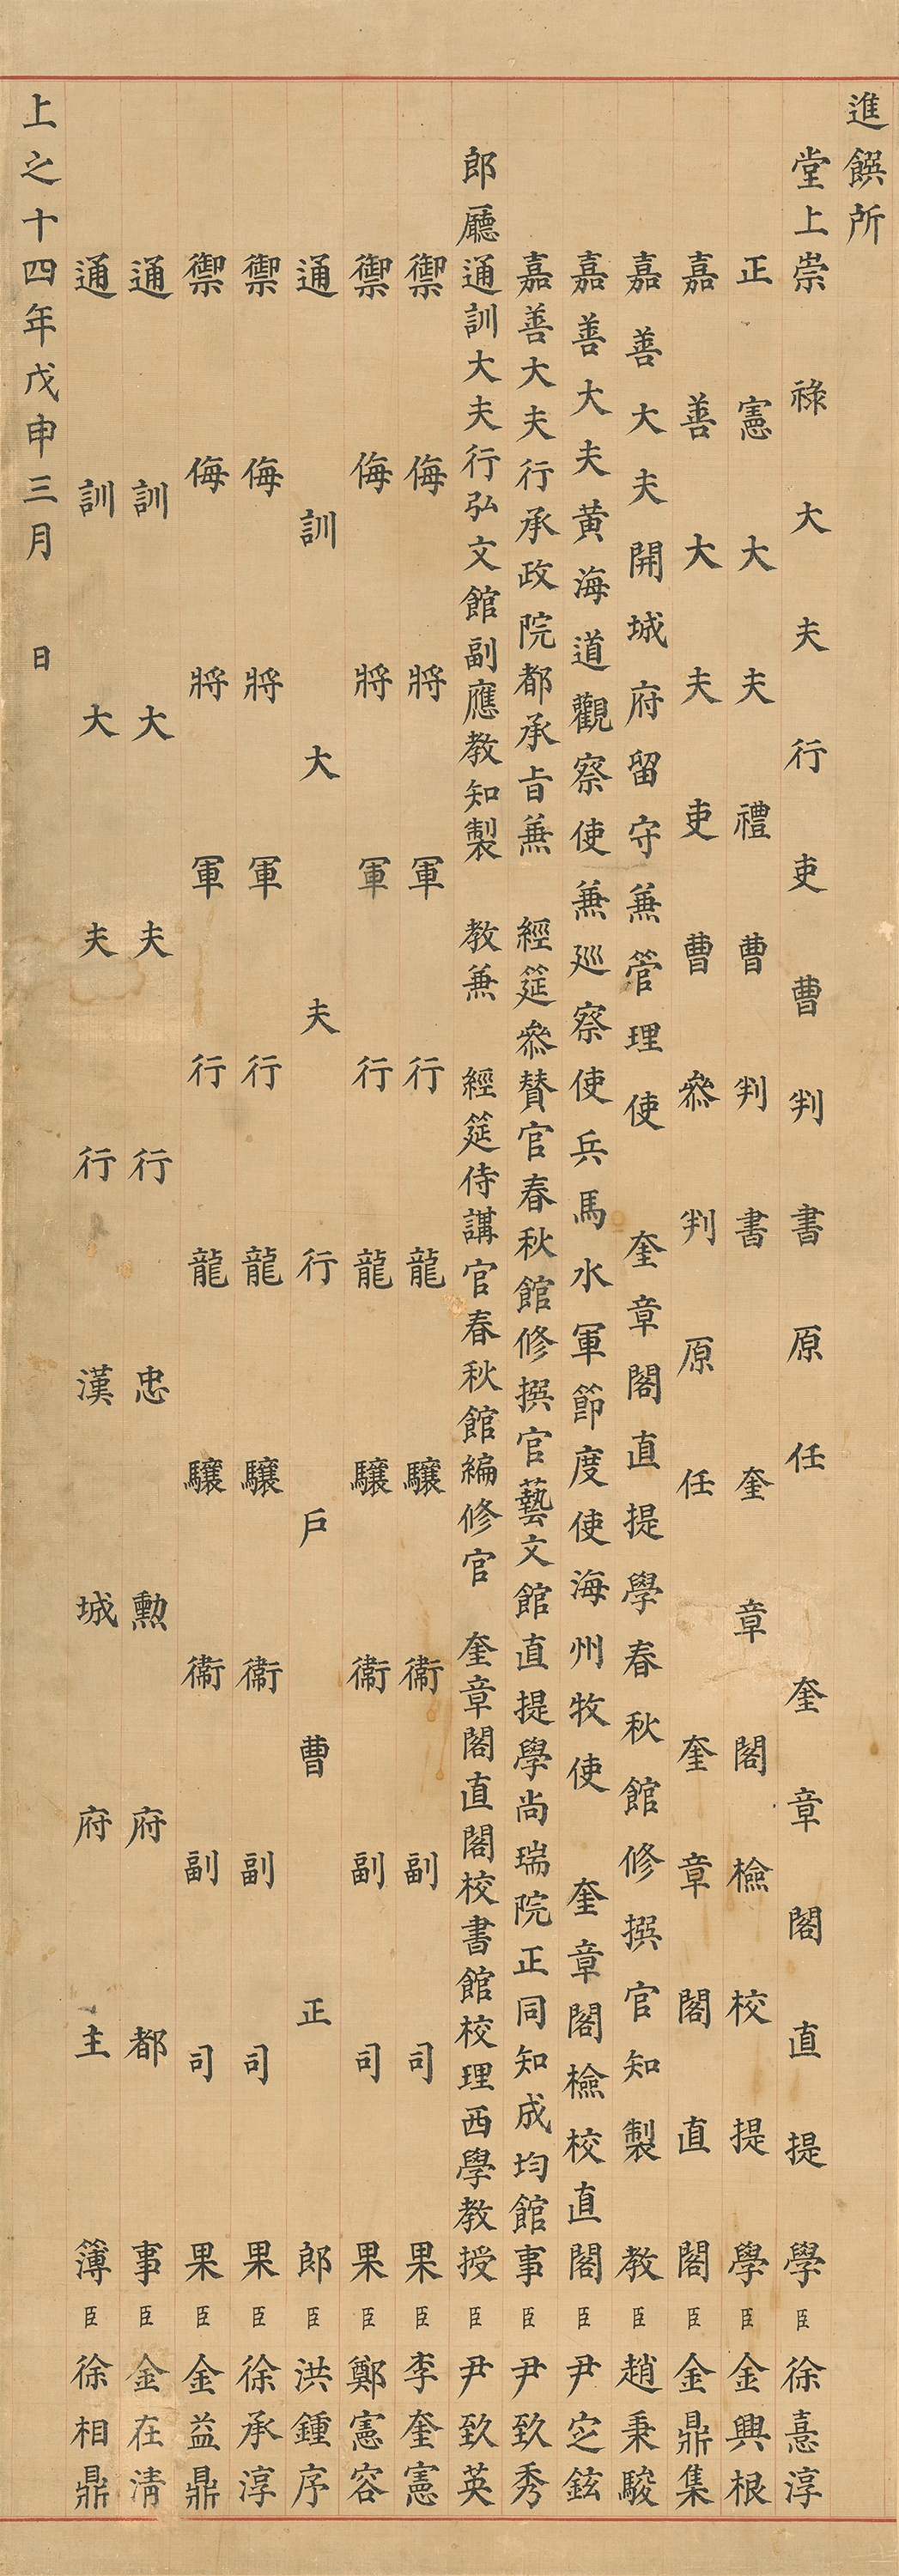 進饌所
堂上崇祿大夫行吏曹判書原任奎章閣直提學臣徐憙淳
正憲大夫禮曹判書奎章閣檢校提學臣金興根
嘉善大夫吏曹參判原任奎章閣直閣臣金鼎集
嘉善大夫開城府留守兼管理使奎章閣直提學春秋館修撰官知製教臣趙秉駿
嘉善大夫黃海道觀察使兼巡察使兵馬水軍節度使海州牧使奎章閣檢校直閣臣尹定鉉
嘉善大夫行承政院都承旨兼經筵參贊官春秋館修撰官藝文館直提學尚瑞院正同知成均館事臣尹致秀
郎廳通訓大夫行弘文館副應教知製教兼經筵侍講官春秋館編修官奎章閣直閣校書館校理西學教授臣尹致英
禦侮將軍行龍驤衞副司果臣李奎憲
禦侮將軍行龍驤衞副司果臣鄭憲容
通訓大夫行戶曹正郎臣洪鍾序
禦侮將軍行龍驤衞副司果臣徐承淳
禦侮將軍行龍驤衞副司果臣金益鼎
通訓大夫行忠勳府都事臣金在清
通訓大夫行漢城府主簿臣徐相鼎
上之十四年戊申三月 日